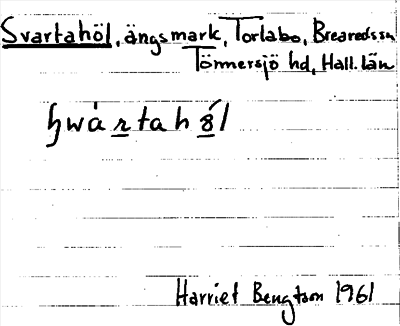 Svartahöl, ängsmark, Torlabo, Brearedssn
Tönnersjö hd, Hall. län
Harriet Bengtson 1961